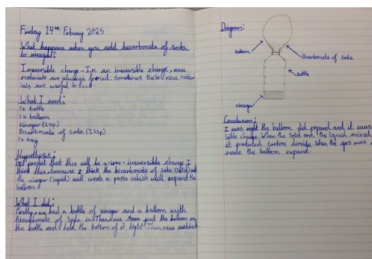 Friday 14th Febuary 2025
What happens when you add bicarbonate of soda
to vinegar?
Irreversible change - In an irreversible change, new
materials are always formed. Sometimes these new mater
ials are useful to us.
What I used:
1x bottle
1x balloon
Vinegar
Bicarbonate of Soda (2 tsp)
1x tray
Hypothesis:
I predict that this will be a irreversible change. I
think this because I think the bicarbonate of soda (solid) and
the vinegar (liquid) will create a which will expand the
balloon.
What I did:
Firstly, we had a bottle of vinegar and a balloon with
bicarbonate of soda in. Then we put the balloon on
the bottle and held the bottom of it tight. Then, we watched
Diagram:
balloon
bicarbonate of soda
bottle
vinegar
Conclusion:
I was right the balloon did expand and it was
When the solid and the liquid mixed
it produced carbon dioxide. When the gas was
made the balloon expand.